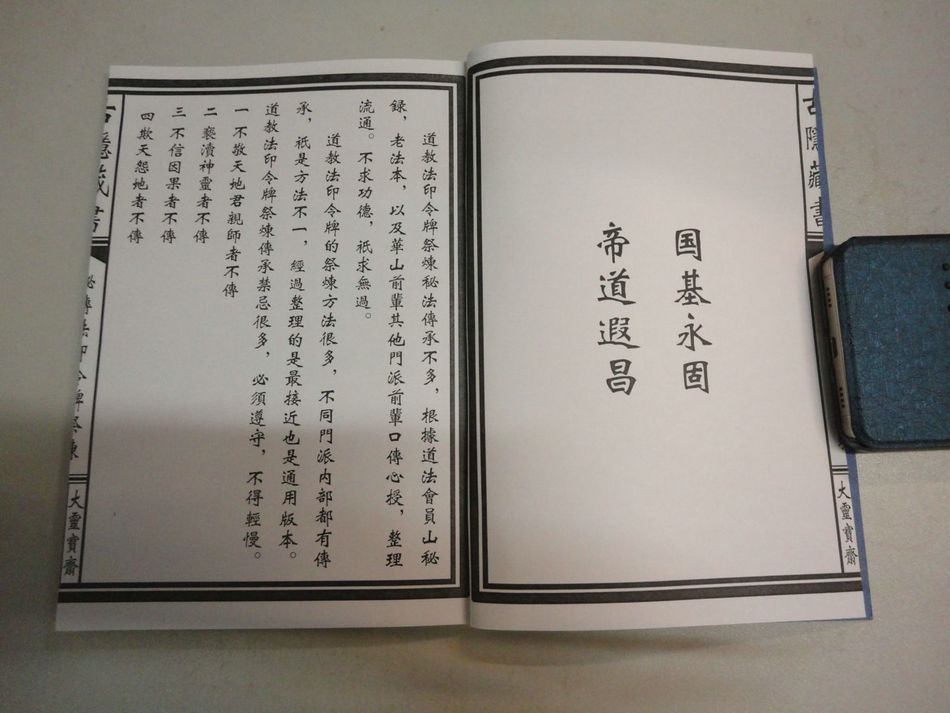 古隱藏書
大靈寶齋
国基永固
帝道遐昌
道教法印令牌祭煉秘法傳承不多，根據道法會員山秘
録，老法本，以及華山前輩其他門派前輩口傳心授，整理
流通。不求功德，祇求無過。
道教法印令牌的祭煉方法很多，不同門派内部都有傳
承，祇是方法不一，經過整理的是最接近也是通用版本。
道教法印令牌祭煉傳承禁忌很多，必須遵守，不得輕慢。
一 不敬天地君親師者不傳
二 褻瀆神靈者不傳
三 不信因果者不傳
四 欺天怨地者不傳
古隱藏書
秘傳法印令牌祭煉
大靈寶齋